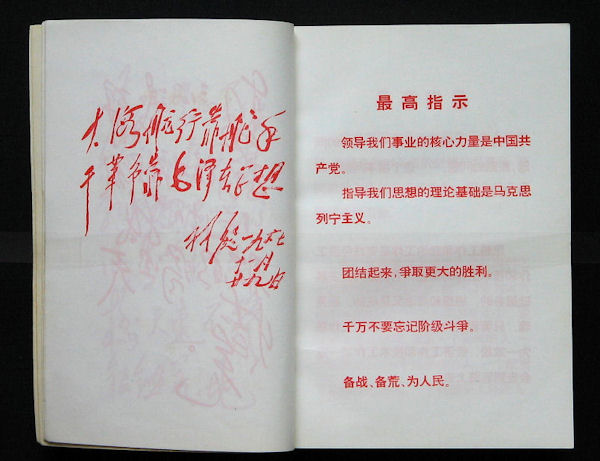 大海航行靠舵手
干革命靠毛泽东思想
林彪一九六七
十一月廿九日
最高指示
领导我们事业的核心力量是中国共
产党。
指导我们思想的理论基础是马克思
列宁主义。
团结起来，争取更大的胜利。
千万不要忘记阶级斗争。
备战、备荒、为人民。